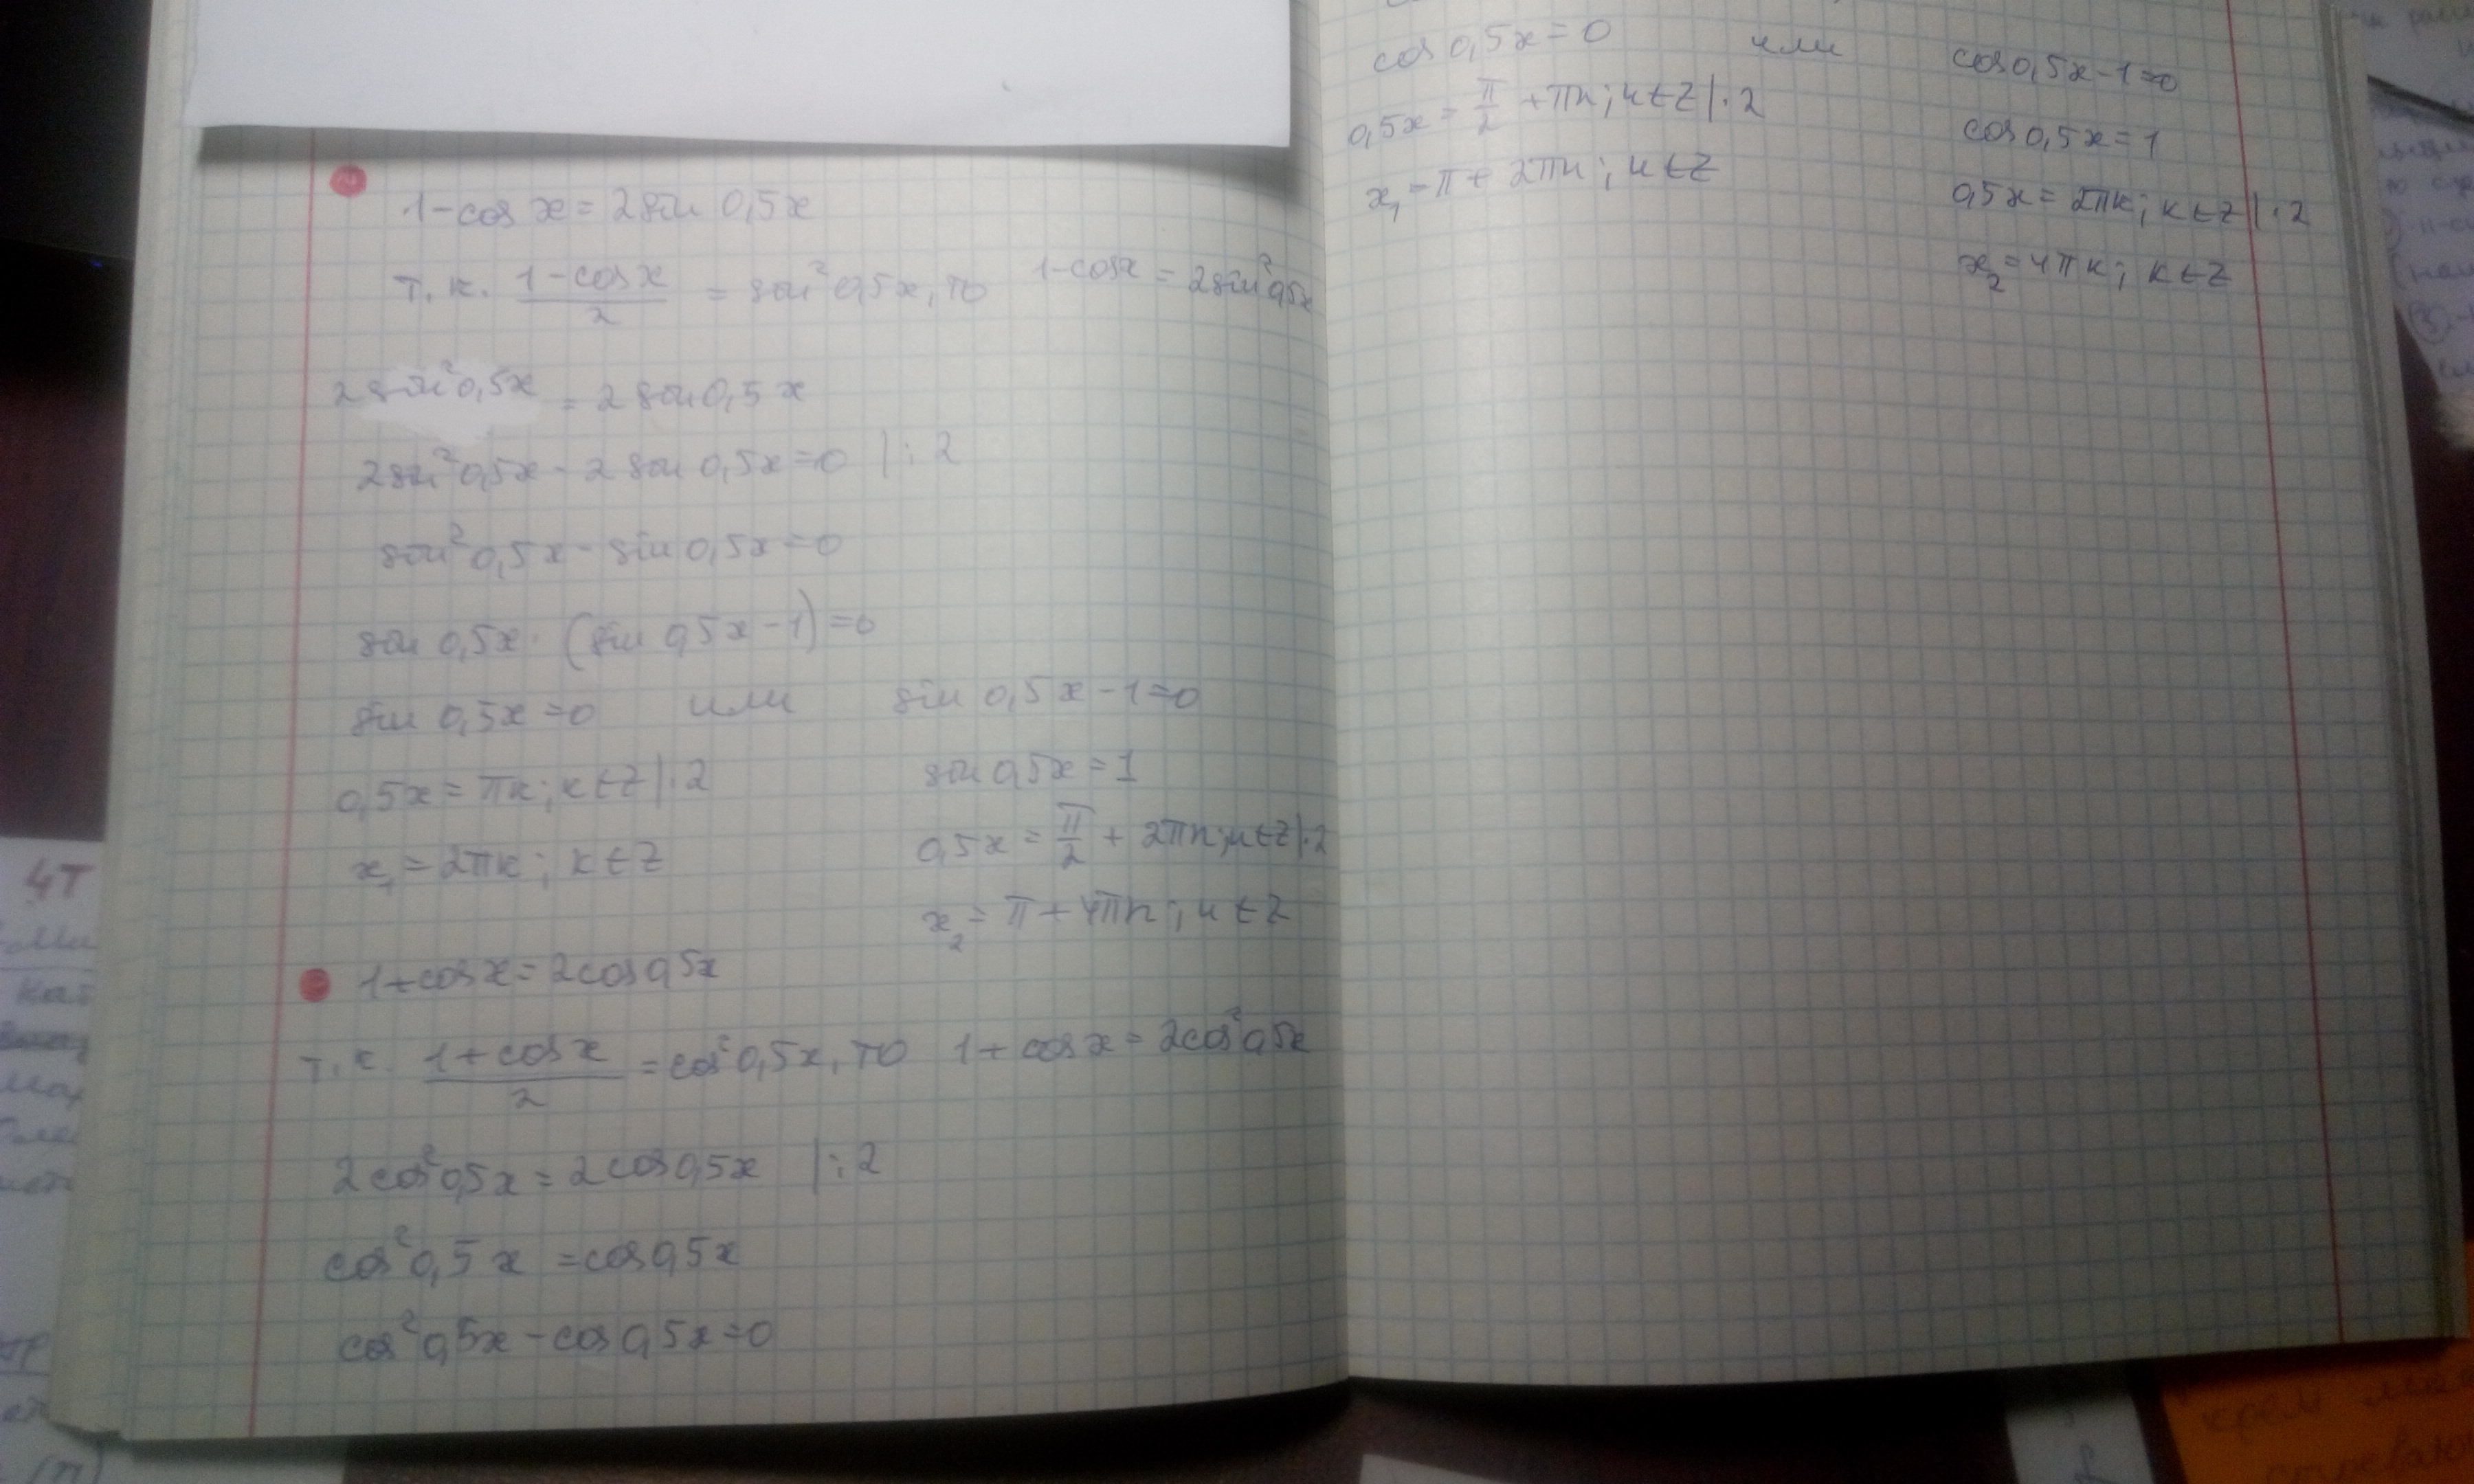 1-cos x = 2 sin 0,5x
т.к. (1-cos x)/2 = sin² 0,5x, то 1-cos x = 2 sin² 0,5x
2 sin² 0,5x = 2 sin 0,5x
2 sin² 0,5x - 2 sin 0,5x = 0 |:2
sin² 0,5x - sin 0,5x = 0
sin 0,5x · (sin 0,5x - 1) = 0
sin 0,5x = 0 или sin 0,5x - 1 = 0
0,5x = πk; k∈Z |·2 sin 0,5x = 1
x₁ = 2πk; k∈Z 0,5x = π/2 + 2πn; n∈Z |·2
x₂ = π + 4πn; n∈Z
1+cos x = 2 cos 0,5x
т.к. (1+cos x)/2 = cos² 0,5x, то 1+cos x = 2cos² 0,5x
2 cos² 0,5x = 2 cos 0,5x |:2
cos² 0,5x = cos 0,5x
cos² 0,5x - cos 0,5x = 0
cos 0,5x = 0 или cos 0,5x - 1 = 0
0,5x = π/2 + πn; n∈Z |·2 cos 0,5x = 1
x₁ = π + 2πn; n∈Z 0,5x = 2πk; k∈Z |·2
x₂ = 4πk; k∈Z
4т
крем